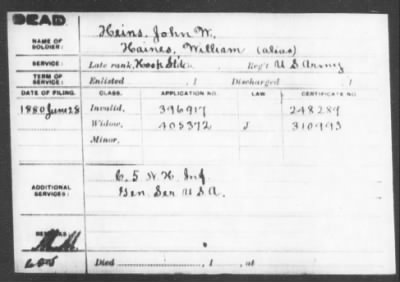 DEAD
NAME OF SOLDIER: Heins, John W.
Haines, William (alias)
SERVICE: Late rank, Hosp Std, Reg't U S Army
TERM OF SERVICE: Enlisted , 1 Discharged , 1
DATE OF FILING. CLASS. APPLICATION NO. LAW CERTIFICATE NO.
1880 June 28 Invalid, 396917 248289
Widow, 405372 J 310993
Minor,
ADDITIONAL SERVICES: C. 5 N. H. Inf.
Gen. Ser. U S A.
REMARKS:
Died , 1 , at